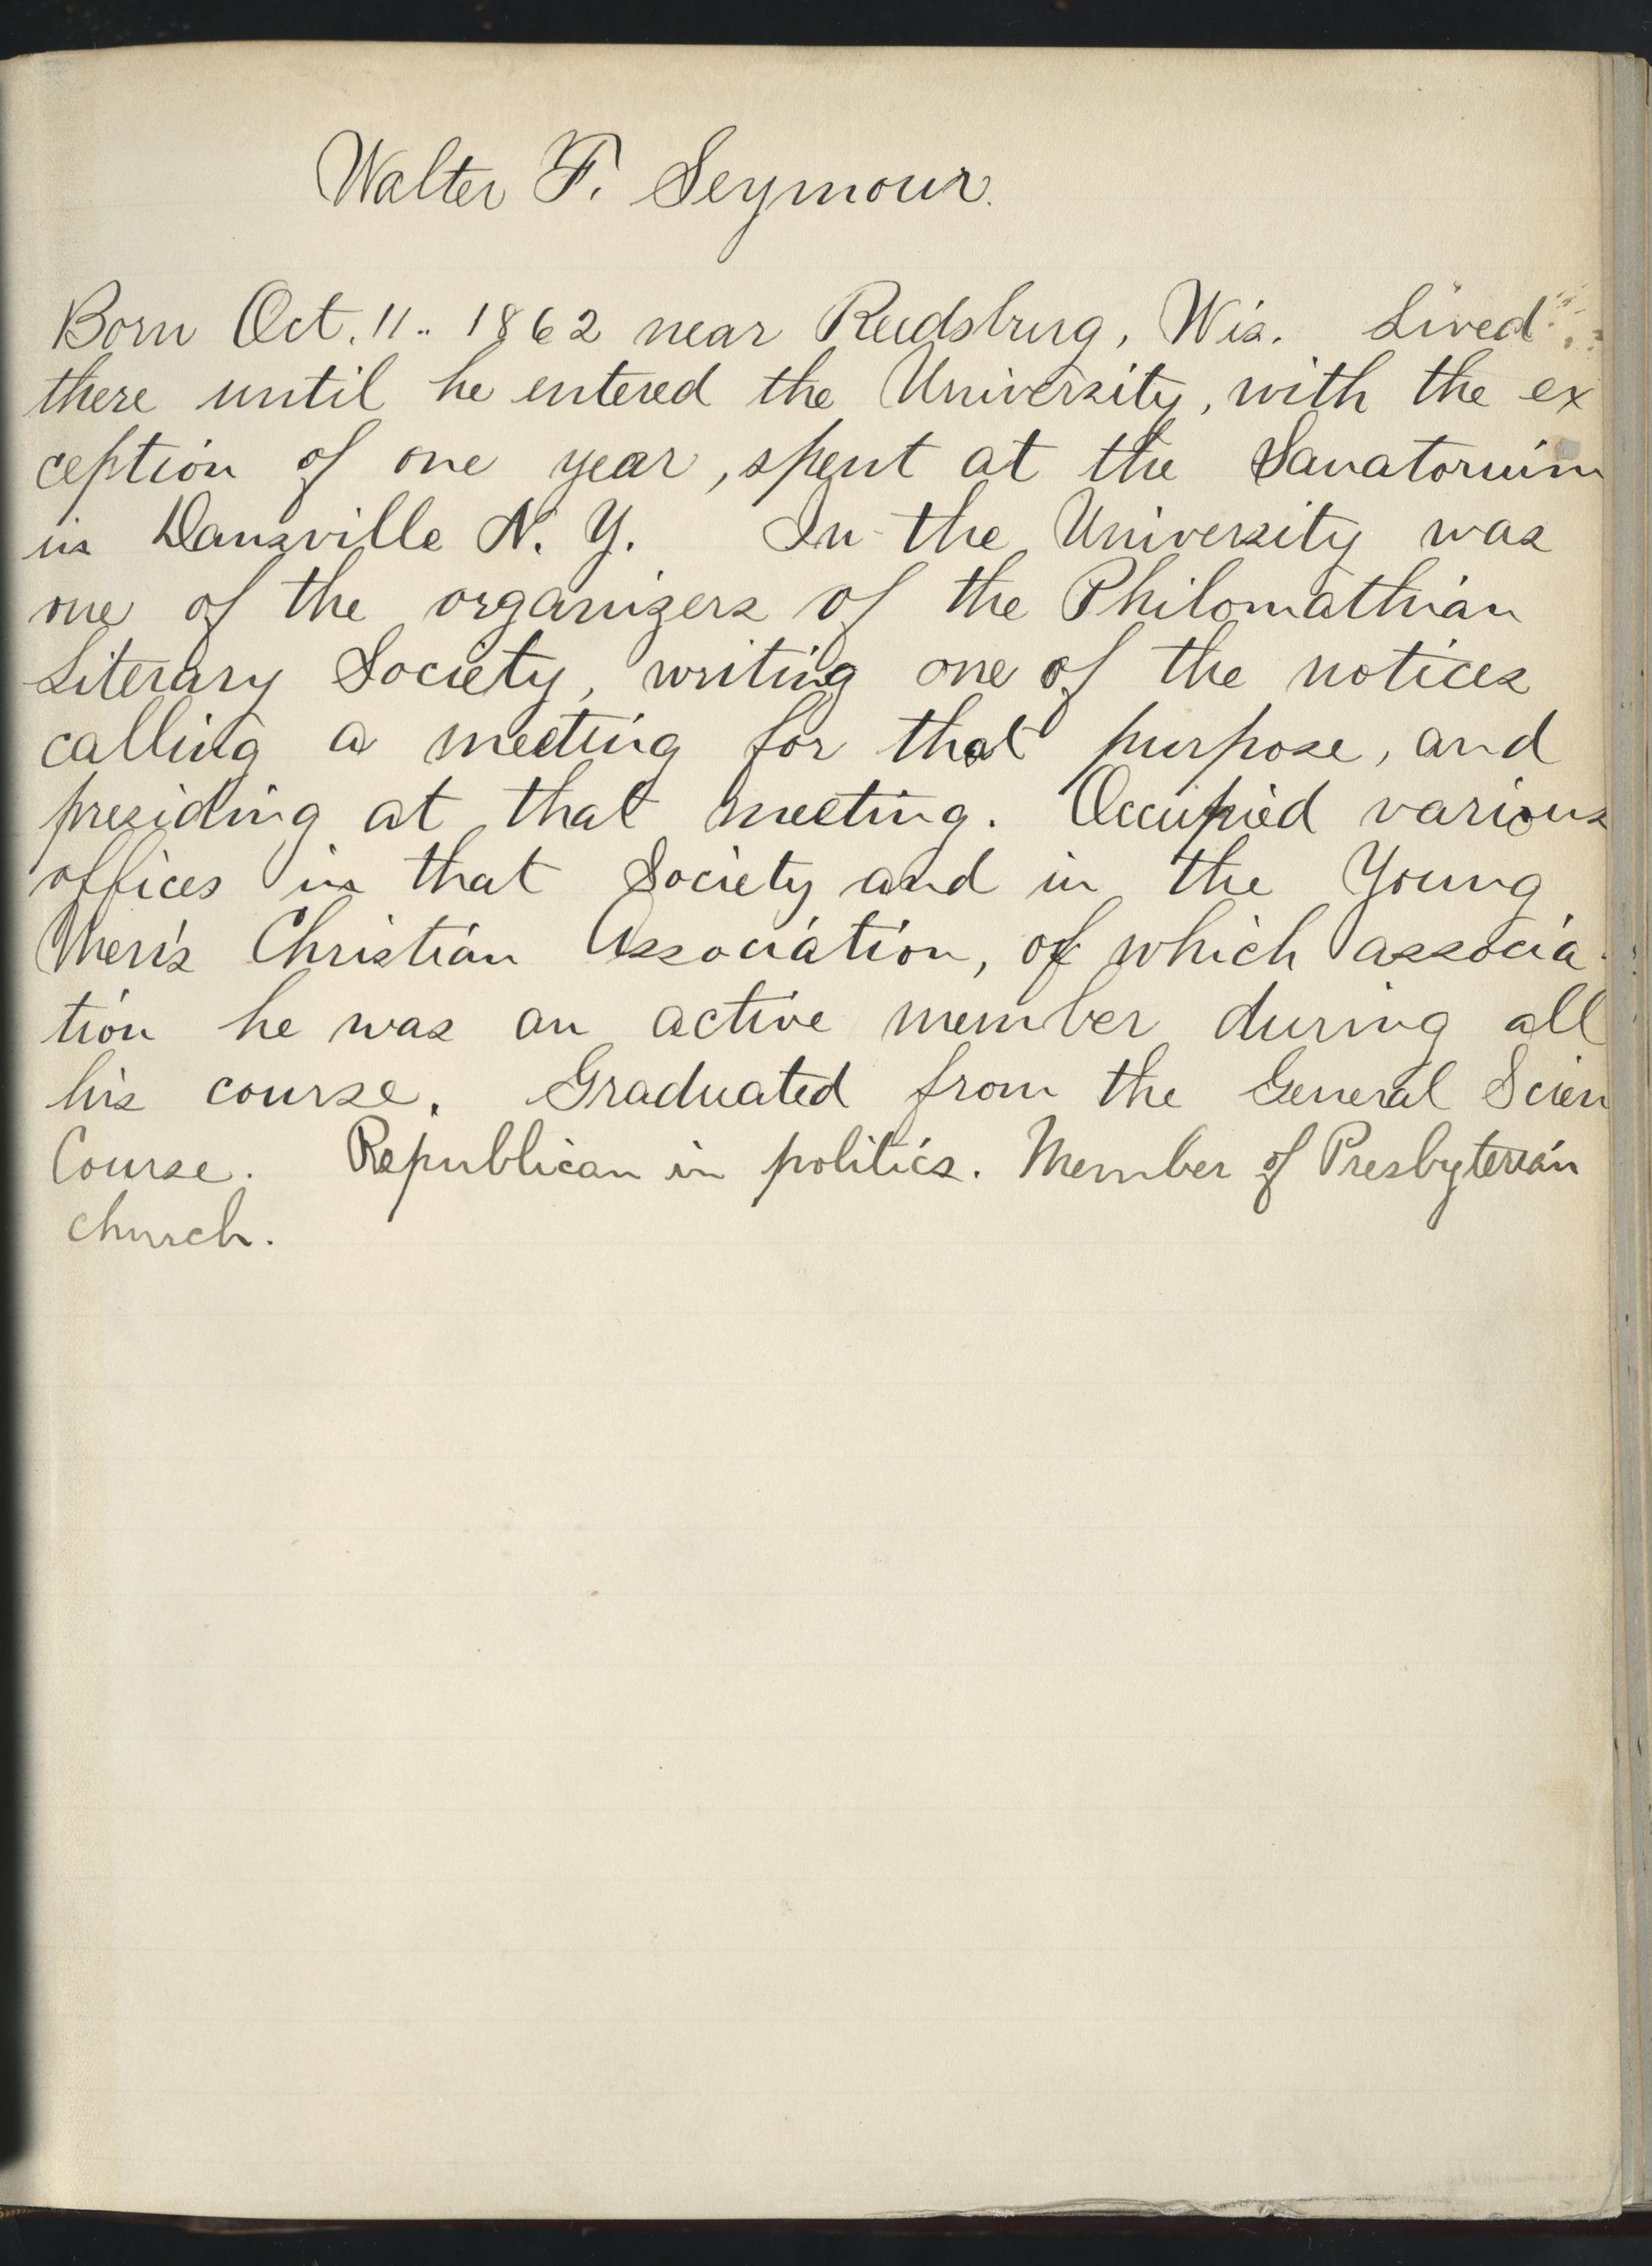 Walter F. Seymour.
Born Oct. 11.. 1862 near Reedsburg, Wis. Lived
there until he entered the University, with the ex
ception of one year, spent at the Sanatorium
in Dansville N. Y. In the University was
one of the organizers of the Philomathian
Literary Society, writing one of the notices
calling a meeting for that purpose, and
presiding at that meeting. Occupied various
offices in that Society and in the Young
Men's Christian Association, of which associa-
tion he was an active member during all
his course. Graduated from the General Scien
Course. Republican in politics. Member of Presbyterian
church.